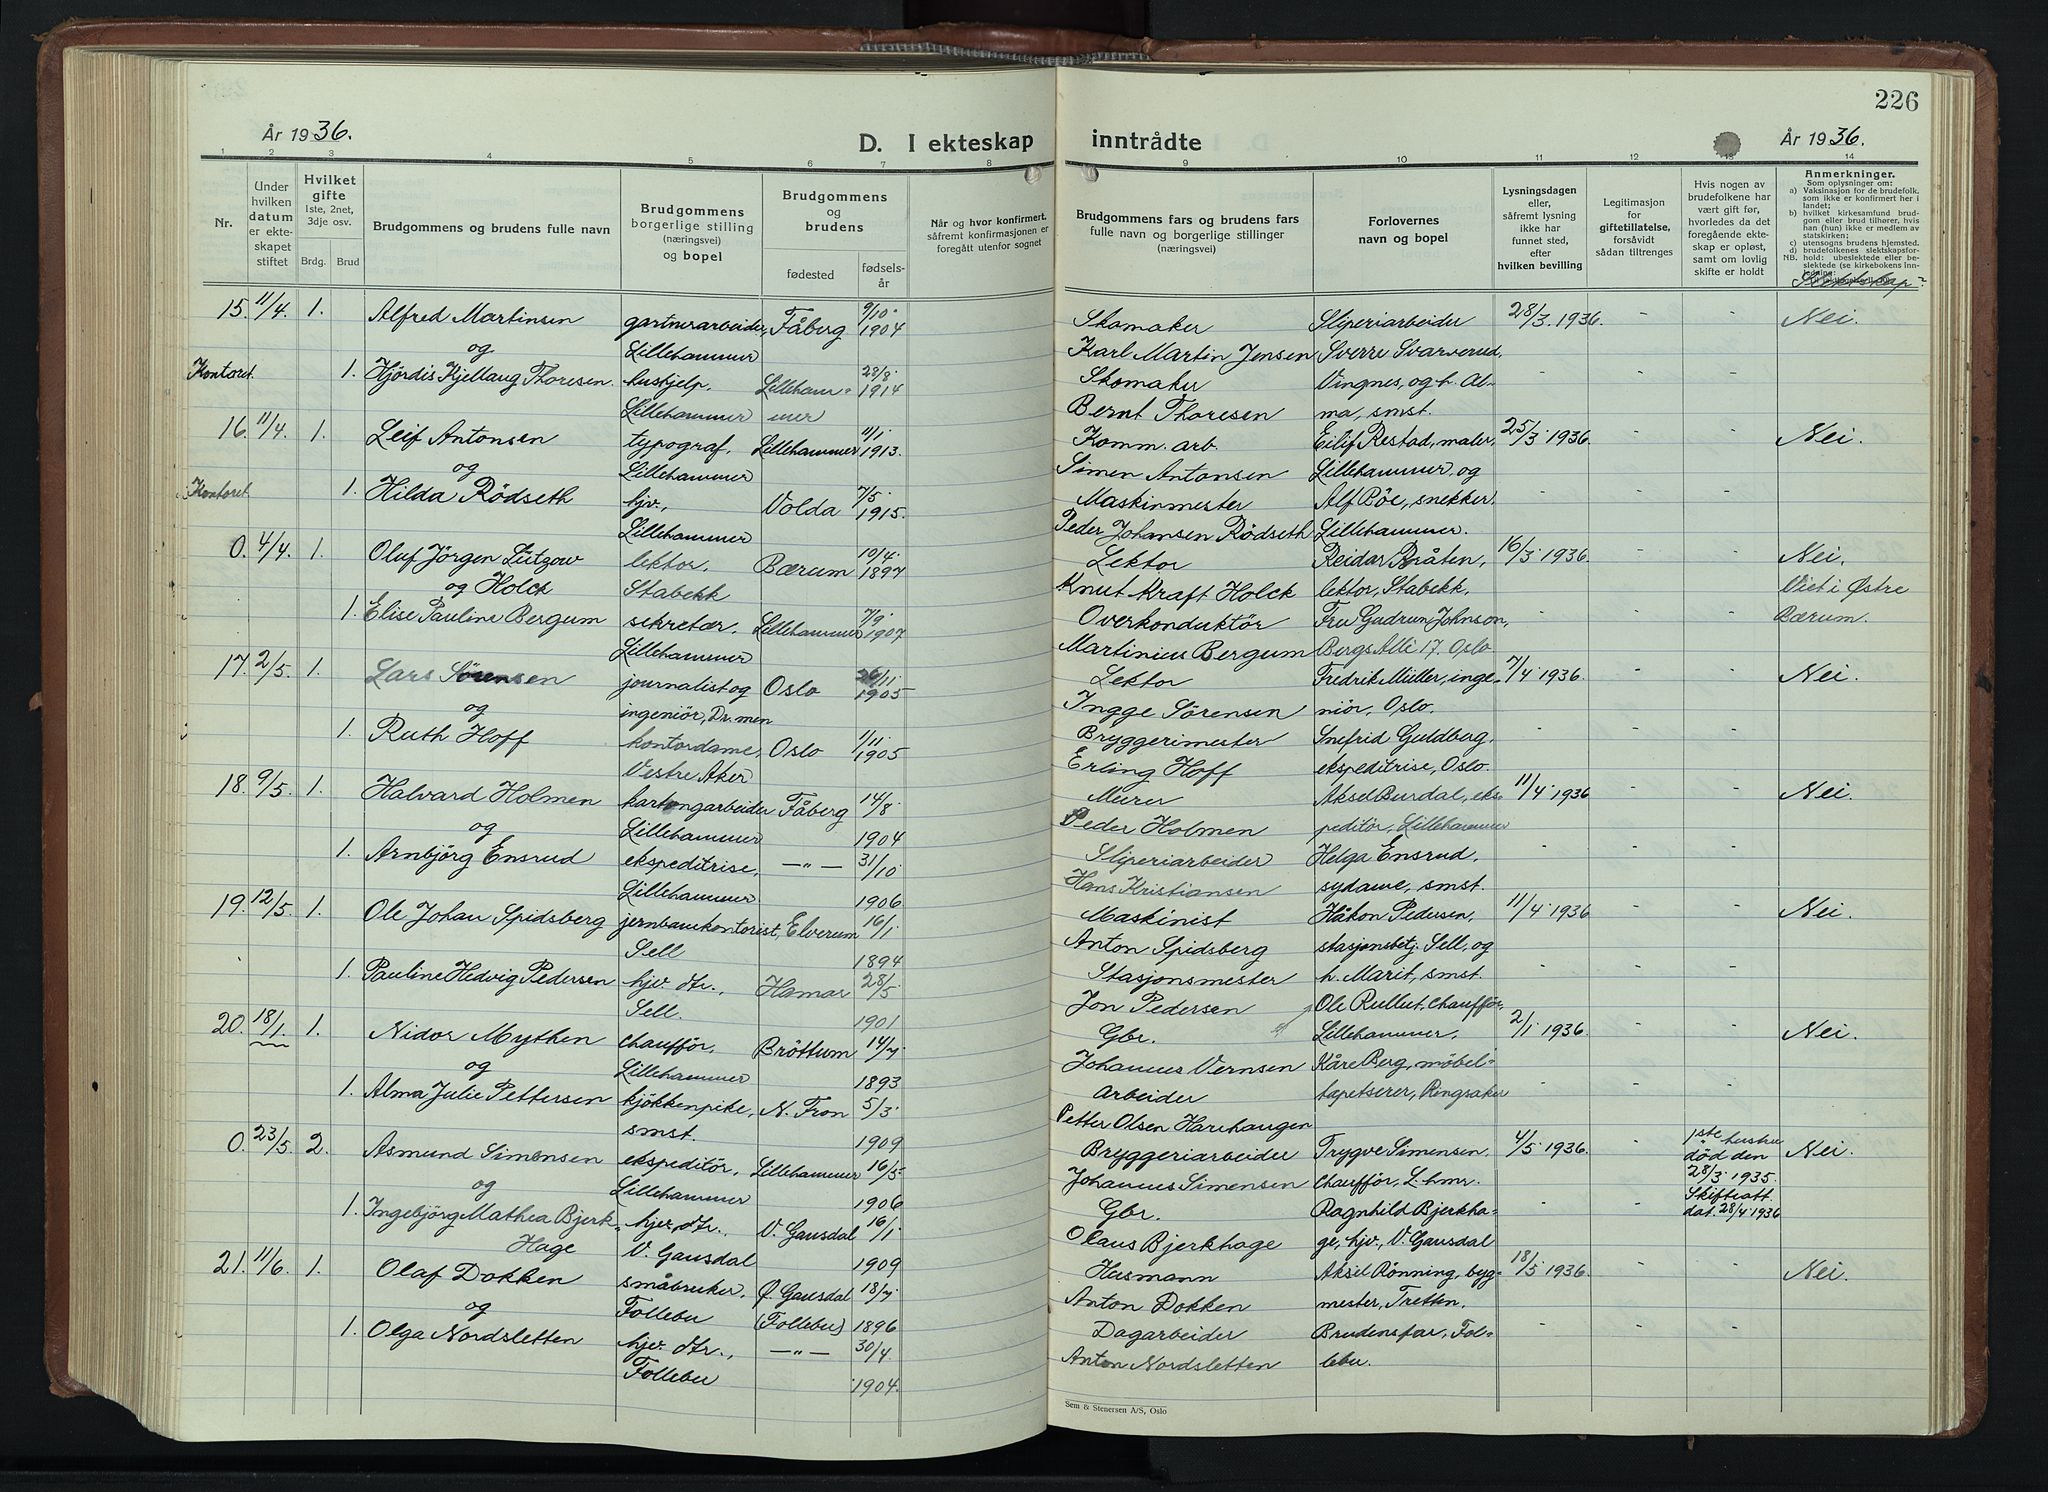 226
År 1936. D. I ekteskap inntrådte År 1936.
1 2 3 4 5 6 7 8 9 10 11 12 13 14
Nr.
Under hvilken datum er ekteskapet stiftet
Hvilket gifte
1ste, 2net, 3dje osv.
Brdg. Brud
Brudgommens og brudens fulle navn
Brudgommens borgerlige stilling (næringsvei) og bopel
Brudgommens og brudens
fødested
fødselsår
Når og hvor konfirmert, såfremt konfirmasjonen er foregått utenfor sognet
Brudgommens fars og brudens fars fulle navn og borgerlige stillinger (næringsvei)
Forlovernes navn og bopel
Lysningsdagen eller, såfremt lysning ikke har funnet sted, efter hvilken bevilling
Legitimasjon for giftetillatelse, forsåvidt sådan tiltrenges
Hvis nogen av brudefolkene har vært gift før, hvorledes da det foregående ekteskap er opløst, samt om lovlig skifte er holdt
Anmerkninger.
Som oplysninger om:
a) Vaksinasjon for de brudefolk. som ikke er konfirmert her i landet;
b) hvilket kirkesamfund brudgom eller brud tilhører, hvis han (hun) ikke er medlem av statskirken;
c) utensogns brudens hjemsted.
d) brudefolkenes slektskapsforhold: ubeslektede eller beslektede
NB.
15. 11/4. 1. Alfred Martinsen gartnerarbeider, Fåberg 9/10. 1904 Skomaker Sliperiarbeider 28/3. 1936. - - Nei.
og Lillehammer Karl Martin Jensen Sverre Svarverud,
Kontoret. 1. Hjördis Kjellaug Thoresen. hushjelp. Lillehammer 28/8. 1914 Skomaker Vingnes, og h. Al-
Lillehammer Bernt Thoresen ma, smst.
16. 11/4. 1. Leif Antonsen typograf, Lillehammer 11/1 1913. Komm. arb. Eilif Restad, maler, 25/3 1936. - - Nei.
og Lillehammer Simen Antonsen Lillehammer, og
Kontoret. 1. Hilda Rödseth hjv., Volda 7/5. 1915. Maskinmester Alf Böe, snekker,
Lillehammer Peder Johansen Rödseth Lillehammer.
0. 4/4. 1. Oluf Jörgen Lützow lektor, Bærum 10/4. 1897 Lektor Reidar Bråten, 16/3 1936. - - Nei.
og Holck Stabekk Knut Kraft Holck lektor, Stabekk, Viet i Østre
1. Elise Pauline Bergum sekretær, Lillehammer 7/9. 1907 Overkonduktör Fru Gudrun Johnson, Bærum.
Lillehammer Martinius Bergum Bergs Allé 17, Oslo
17. 2/5. 1. Lars Sörensen journalist og Oslo 26/11 1905 Lektor Fredrik Müller, inge- 7/4 1936. - - Nei.
og ingeniör, Dr.men Ingge Sörensen niör, Oslo.
1. Ruth Hoff kontordame, Oslo 1/11. 1905 Bryggerimester Snefrid Guldberg,
Vestre Aker Erling Hoff ekspeditrise, Oslo.
18. 9/5. 1. Halvard Holmen kartongarbeider Fåberg 14/8. Murer Aksel Burdal, eks 11/4 1936 - - Nei.
og Lillehammer 1904 Peder Holmen peditör, Lillehammer
1. Arnbjörg Ensrud ekspeditrise, —"— 31/10 Sliperiarbeider Helga Ensrud,
Lillehammer 1906 Hans Kristiansen sydame, smst.
19. 12/5. 1. Ole Johan Spidsberg jernbanekontorist, Elverum 16/1. Maskinist Håkon Pedersen, 11/4 1936 - - Nei.
Sell 1894 Anton Spidsberg stasjonsbetj. Sell, og
1. Pauline Hedvig Pedersen hjv. dtr., Hamar 28/5 Stasjonsmester h. Marit, smst.
Sell. 1901 Jon Pedersen Ole Rullut, chaufför,
20. 18/1. 1. Nidor Mythen chaufför, Bröttum 14/7. Gbr. Lillehammer, 2/1 1936. - - Nei.
og Lillehammer 1893 Johannes Vernsen Kåre Berg, möbel-
1. Alma Julie Pettersen kjökkenpike, N. Fron 5/3. Arbeider tapetserer, Ringsaker
smst. 1909 Petter Olsen Harehaugen
0. 23/5. 2. Asmund Simensen ekspeditör, Lillehammer 16/5 Bryggeriarbeider Trygve Simensen, 4/5 1936. - 1ste hustru død den 28/3 1935. Skifteatt. dat. 28/4 1936 Nei.
og Lillehammer 1906 Johannes Simensen chaufför, L.hmr.
1. Ingebjörg Mathea Bjerk- hjv. dtr., V. Gausdal 16/1. Gbr. Ragnhild Bjerkha-
Hage V. Gausdal 1909 Olaus Bjerkhage ge, hjv., V. Gausdal
21. 11/6. 1. Olaf Dokken småbruker, Ø. Gausdal 18/7. Husmann Aksel Rönning, byg- 18/5 1936. - - Nei.
og Follebu (Follebu) 1896 Anton Dokken mester, Tretten.
1. Olga Nordsletten hjv. dtr., —"— 30/4. Dagarbeider Brudens far, Fol-
Follebu 1904. Anton Nordsletten lebu.
Sem & Stenersen A/S, Oslo